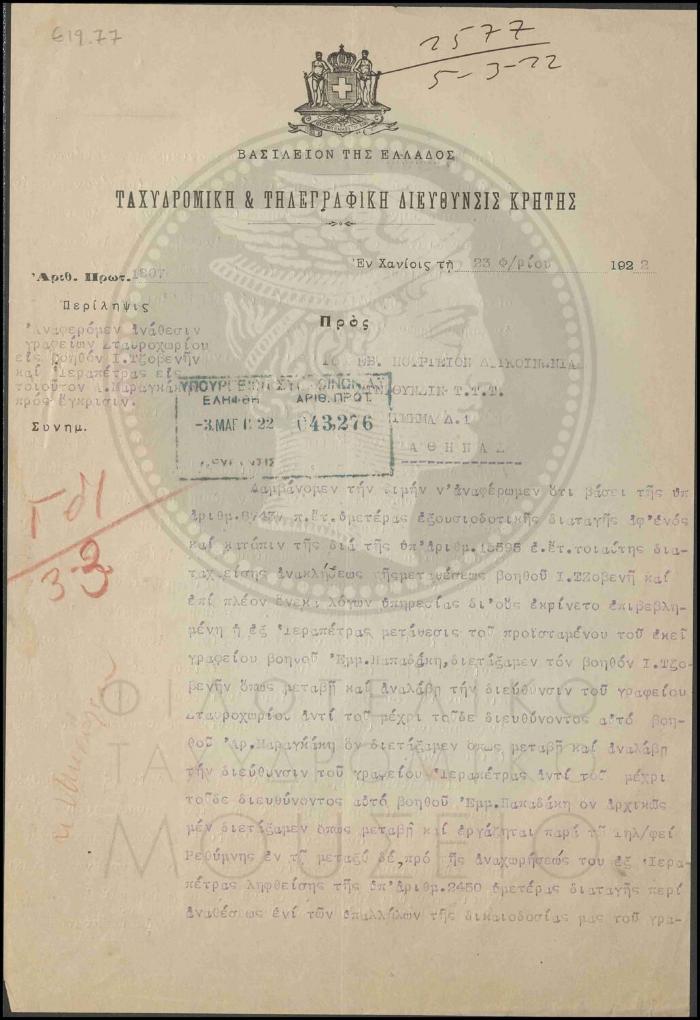 €19.77
2577
5-3-22
ΒΑΣΙΛΕΙΟΝ ΤΗΣ ΕΛΛΑΔΟΣ
ΤΑΧΥΔΡΟΜΙΚΗ & ΤΗΛΕΓΡΑΦΙΚΗ ΔΙΕΥΘΥΝΣΙΣ ΚΡΗΤΗΣ
Ἐν Χανίοις τῇ 23 Φ/ρίου 1922
Ἀριθ. Πρωτ. 1807
Περίληψις
Ἀναφερόμεν ἀνάθεσιν
γραφείων Σταυροχωρίου
εἰς βοηθόν Ι.Τζοβενῆν
καί Ἱεραπέτρας εἰς
τοιοῦτον Α.Μαραγκάκην
πρός ἔγκρισιν.
Συνημ.
Πρὸς
ΔΙΕΥΘΥΝΣΙΝ Τ.Τ.Τ.
ΤΜΗΜΑ Δ.1
ΑΘΗΝΑΣ
ΥΠΟΥΡΓΕΙΟΝ ΣΥΓΚΟΙΝΩΝΙΑΣ
ΕΛΗΦΘΗ ΑΡΙΘ. ΠΡΩΤ.
-3.ΜΑΡ 1922 043,276
3-3
Λαμβάνομεν τήν τιμήν ν'ἀναφέρωμεν ὅτι βάσει τῆς ὑπ
ἀριθμ.8743 π.ἔτ.ὑμετέρας ἐξουσιοδοτικῆς διαταγῆς ἀφ'ἑνός
καί κατόπιν τῆς διά τῆς ὑπ'ἀριθμ.15595 ἐ.ἔτ.τοιαύτης δια-
ταχθείσης ἀνακλήσεως τῆς μεταθέσεως βοηθοῦ Ι.Τζοβενῆ καί
ἐπί πλέον ἕνεκα λόγων ὑπηρεσίας δι'οὕς ἐκρίνετο ἐπιβεβλη-
μένη ἡ ἐξ Ἱεραπέτρας μετάθεσις τοῦ προϊσταμένου τοῦ ἐκεῖ
γραφείου βοηθοῦ Ἐμμ.Παπαδάκη,διετάξαμεν τόν βοηθόν Ι.Τζο-
βενῆν ὅπως μεταβῇ καί ἀναλάβῃ τήν διεύθυνσιν τοῦ γραφείου
Σταυροχωρίου ἀντί τοῦ μέχρι τοῦδε διευθύνοντος αὐτό βοη-
θοῦ Ἀρ.Μαραγκάκη ὅν διετάξαμεν ὅπως μεταβῇ καί ἀναλάβῃ
τήν διεύθυνσιν τοῦ γραφείου Ἱεραπέτρας ἀντί τοῦ μέχρι
τοῦδε διευθύνοντος αὐτό βοηθοῦ Ἐμμ.Παπαδάκη ὅν ἀρχικῶς
μέν διετάξαμεν ὅπως μεταβῇ καί ἐργάζηται παρά τῷ τηλ/φείῳ
Ρεθύμνης ἐν τῷ μεταξύ δέ,πρό τῆς ἀναχωρήσεώς του ἐξ Ἱερα-
πέτρας ληφθείσης τῆς ὑπ'ἀριθμ.2450 ὑμετέρας διαταγῆς περί
ἀναθέσεως ἑνί τῶν ὑπαλλήλων τῆς δικαιοδοσίας μας τοῦ γρα-
ΦΙΛΟΤΕΛΙΚΟ
ΤΑΧΥΔΡΟΜΙΚΟ
ΜΟΥΣΕΙΟ